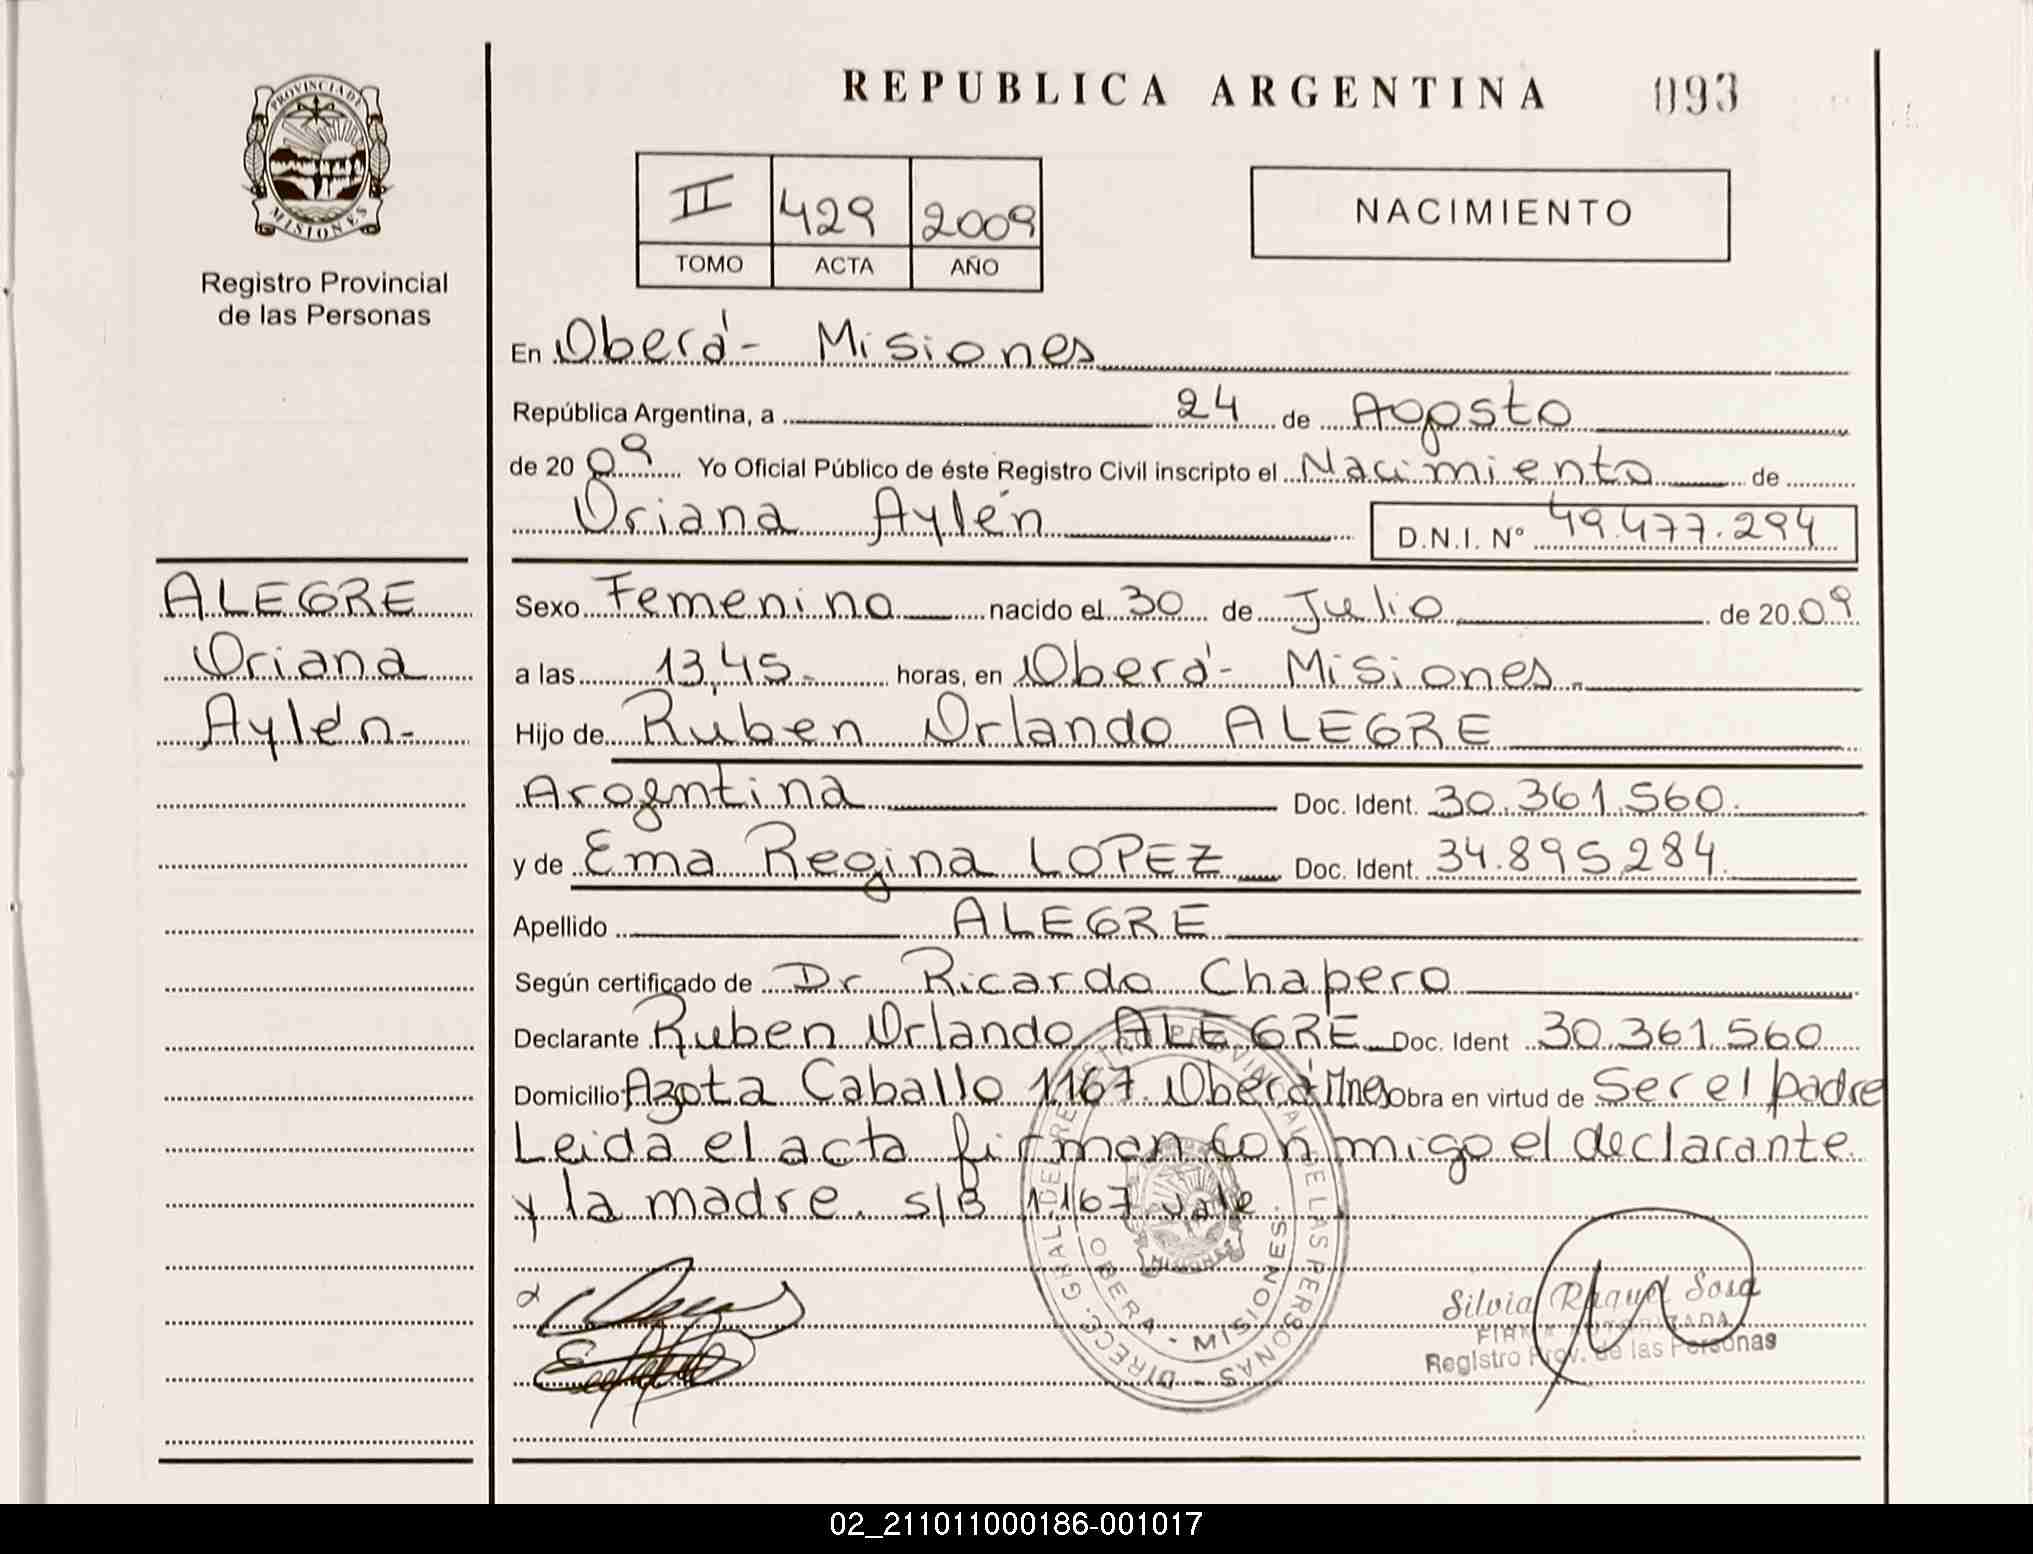 REPUBLICA ARGENTINA 093
PROVINCIA DE
MISIONES
Registro Provincial
de las Personas
II 429 2009
TOMO ACTA AÑO
NACIMIENTO
En Oberá - Misiones
República Argentina, a 24 de Agosto
de 2009 Yo Oficial Público de éste Registro Civil inscripto el Nacimiento de
Oriana Aylén D.N.I. N° 49.477.294
ALEGRE
Oriana
Aylén-
Sexo Femenino nacido el 30 de Julio de 2009
a las 13,45- horas, en Oberá - Misiones-
Hijo de Ruben Orlando ALEGRE
Argentina Doc. Ident. 30.361.560.
y de Ema Regina LOPEZ Doc. Ident. 34.895.284.
Apellido ALEGRE
Según certificado de Dr Ricardo Chapero
Declarante Ruben Orlando ALEGRE Doc. Ident 30.361.560
Domicilio Azota Caballo 1167. Oberá Mnes Obra en virtud de Ser el padre
Leida el acta firman con migo el declarante
y la madre. s/B 1167 vale
DIRECC. GRAL. DEL REGISTRO PROVINCIAL DE LAS PERSONAS -
OBERA - MISIONES.
Silvia Raquel Sosa
FIRMA AUTORIZADA
Registro Prov. de las Personas
02_211011000186-001017